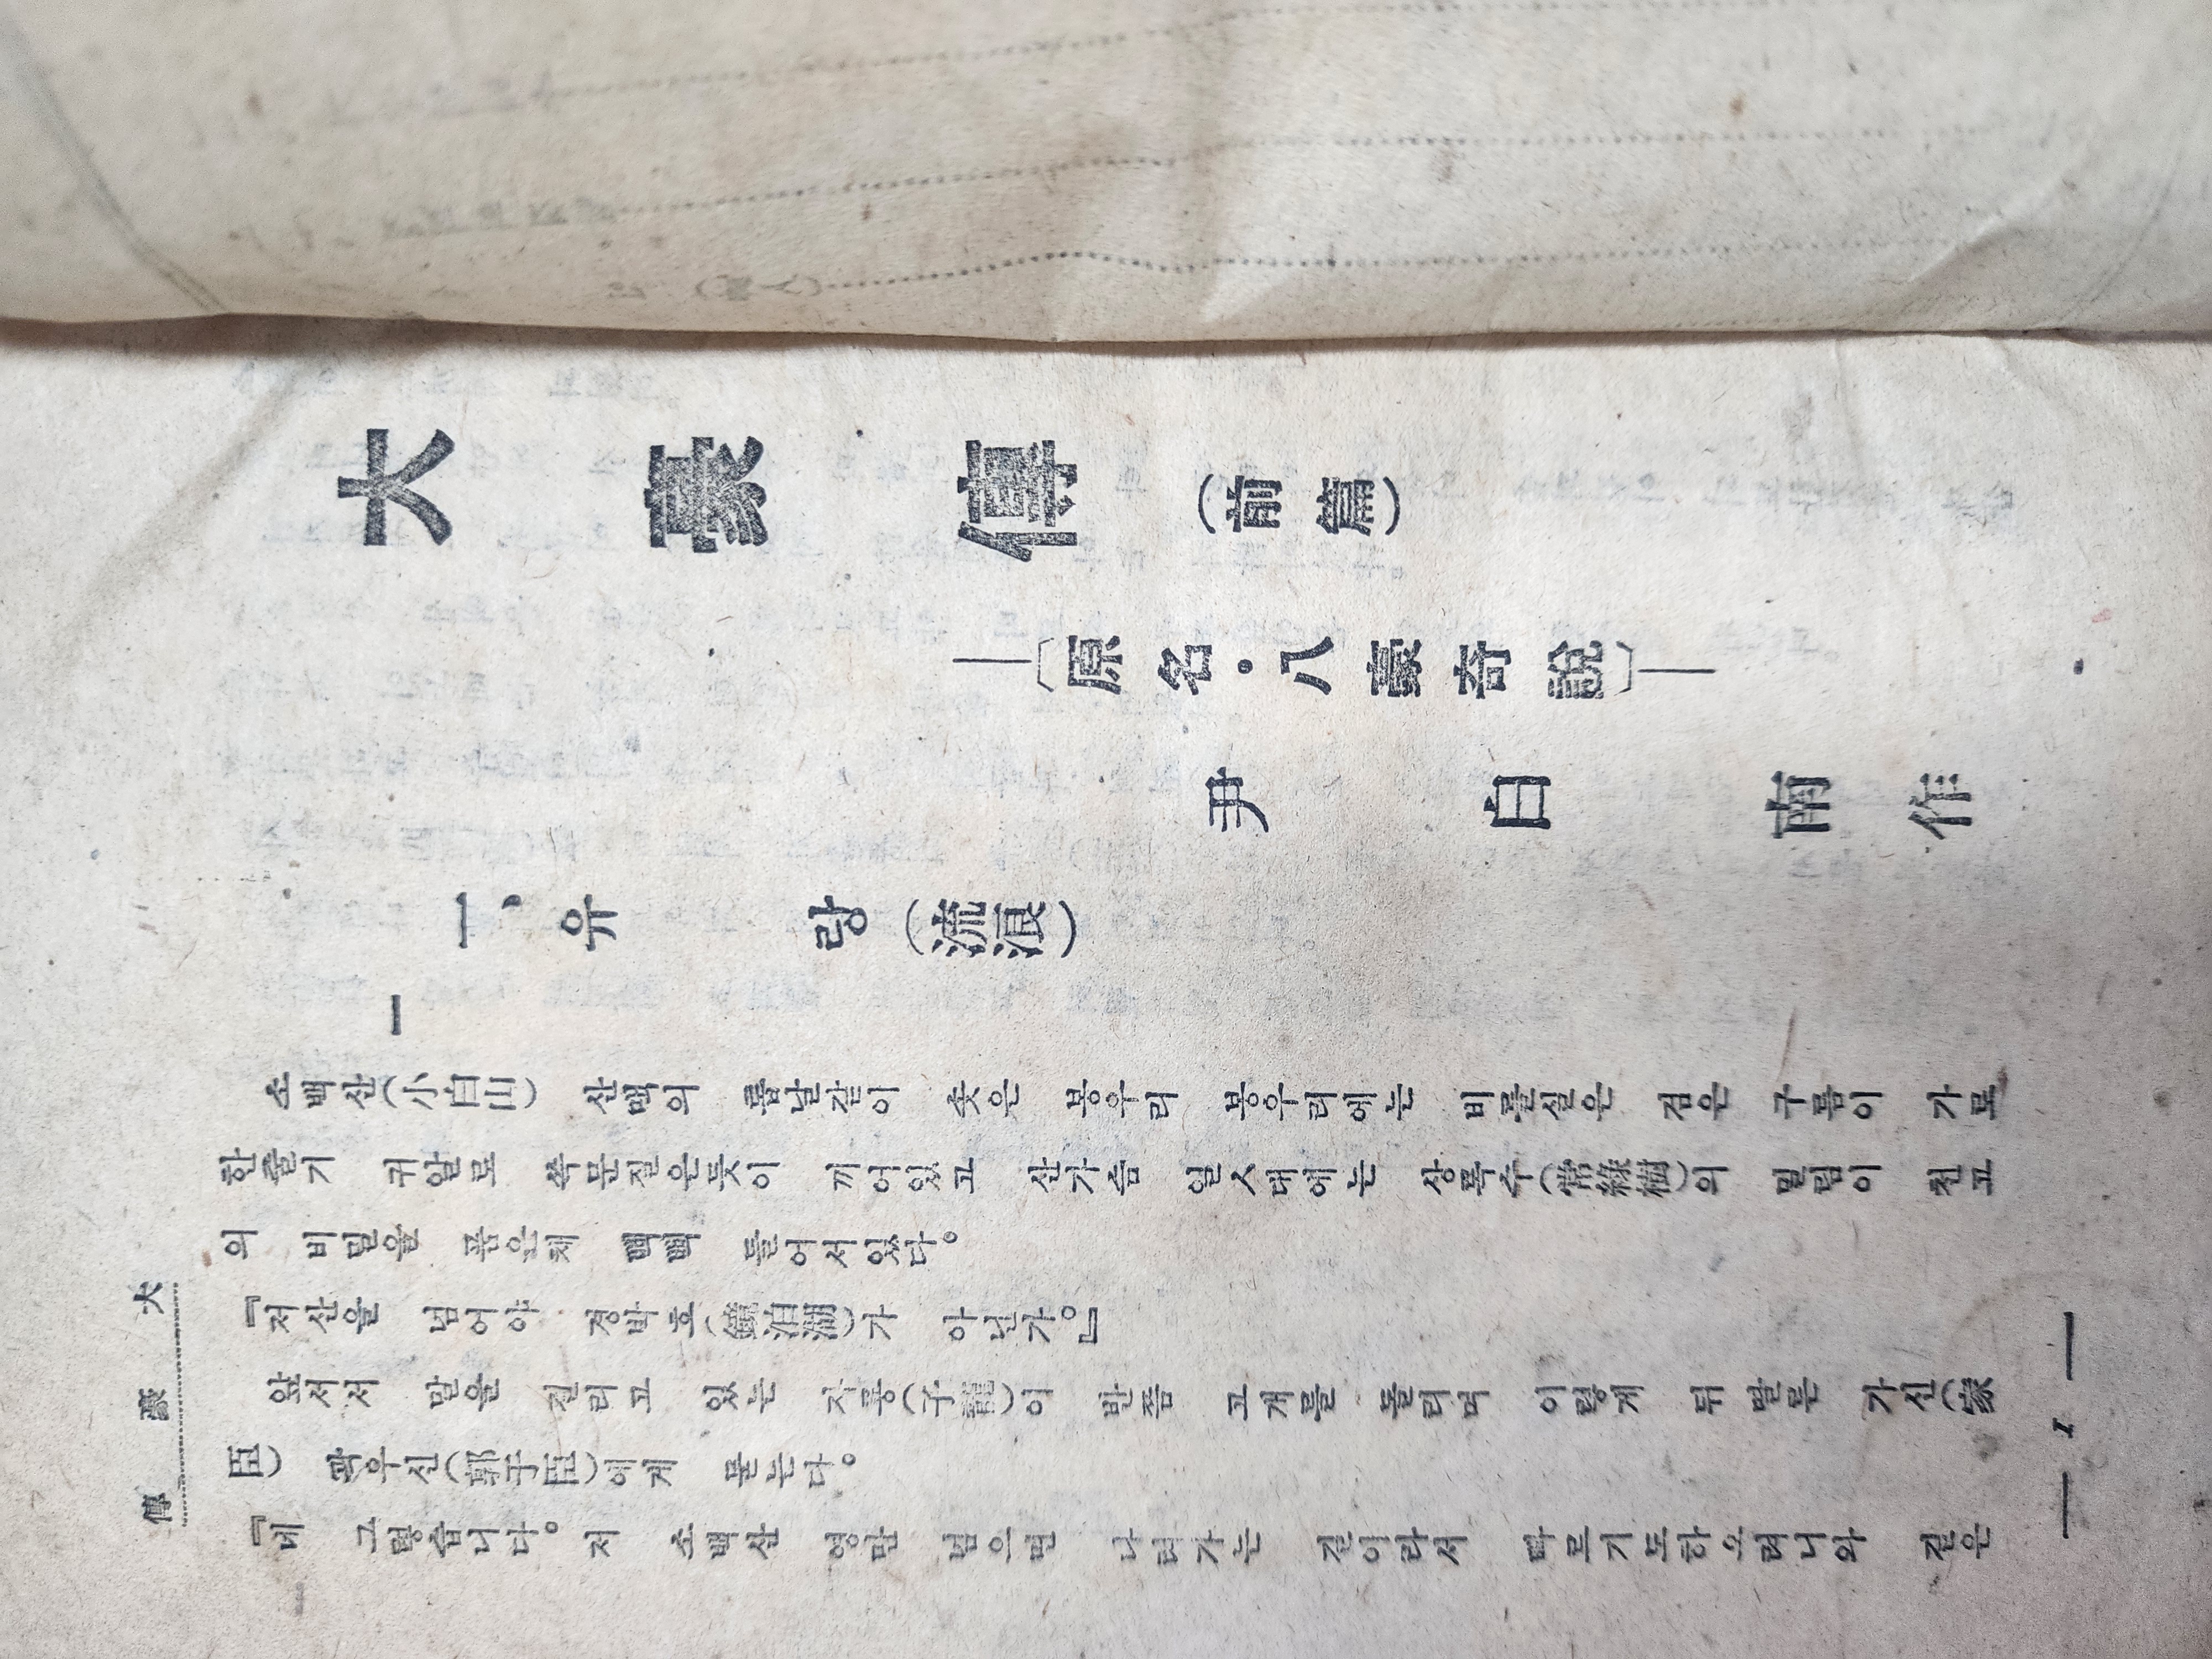 大豪傳(前篇)
―〔原名·八豪奇說〕―
尹白南作
一、유 랑(流浪)
一
소백산(小白山) 산맥의 톱날같이 솟은 봉우리 봉우리에는 비를실은 검은 구름이 가로
한줄기 귀얄로 쓱문질은듯이 끼어있고 산가슴 일대에는 상록수(常綠樹)의 밀림이 천고
의 비밀을 품은체 빽빽 들어서있다。
『저산을 넘어야 경박호(鏡泊湖)가 아닌가。』
앞서서 말을 걸리고 있는 자룡(子龍)이 반쯤 고개를 돌리며 이렇게 뒤 딸른 가신(家
臣) 곽우신(郭于臣)에게 묻는다。
『네 그렇습니다。 저 소백산 영만 넘으면 나려가는 길이라서 빠르기도하오려니와 길은
大豪傳
― 1 ―